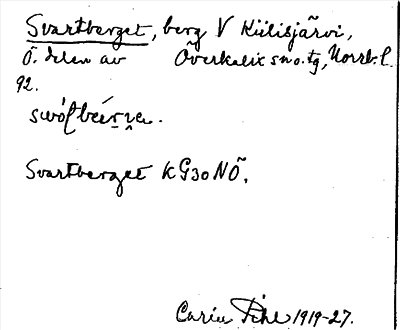 Svartberget, berg V Külisjärvi,
Ö. delen av Överkalix sn o. tg, Norrb. l.
92.
Svartberget K G30NÖ.
Carin Pihl 1919-27.